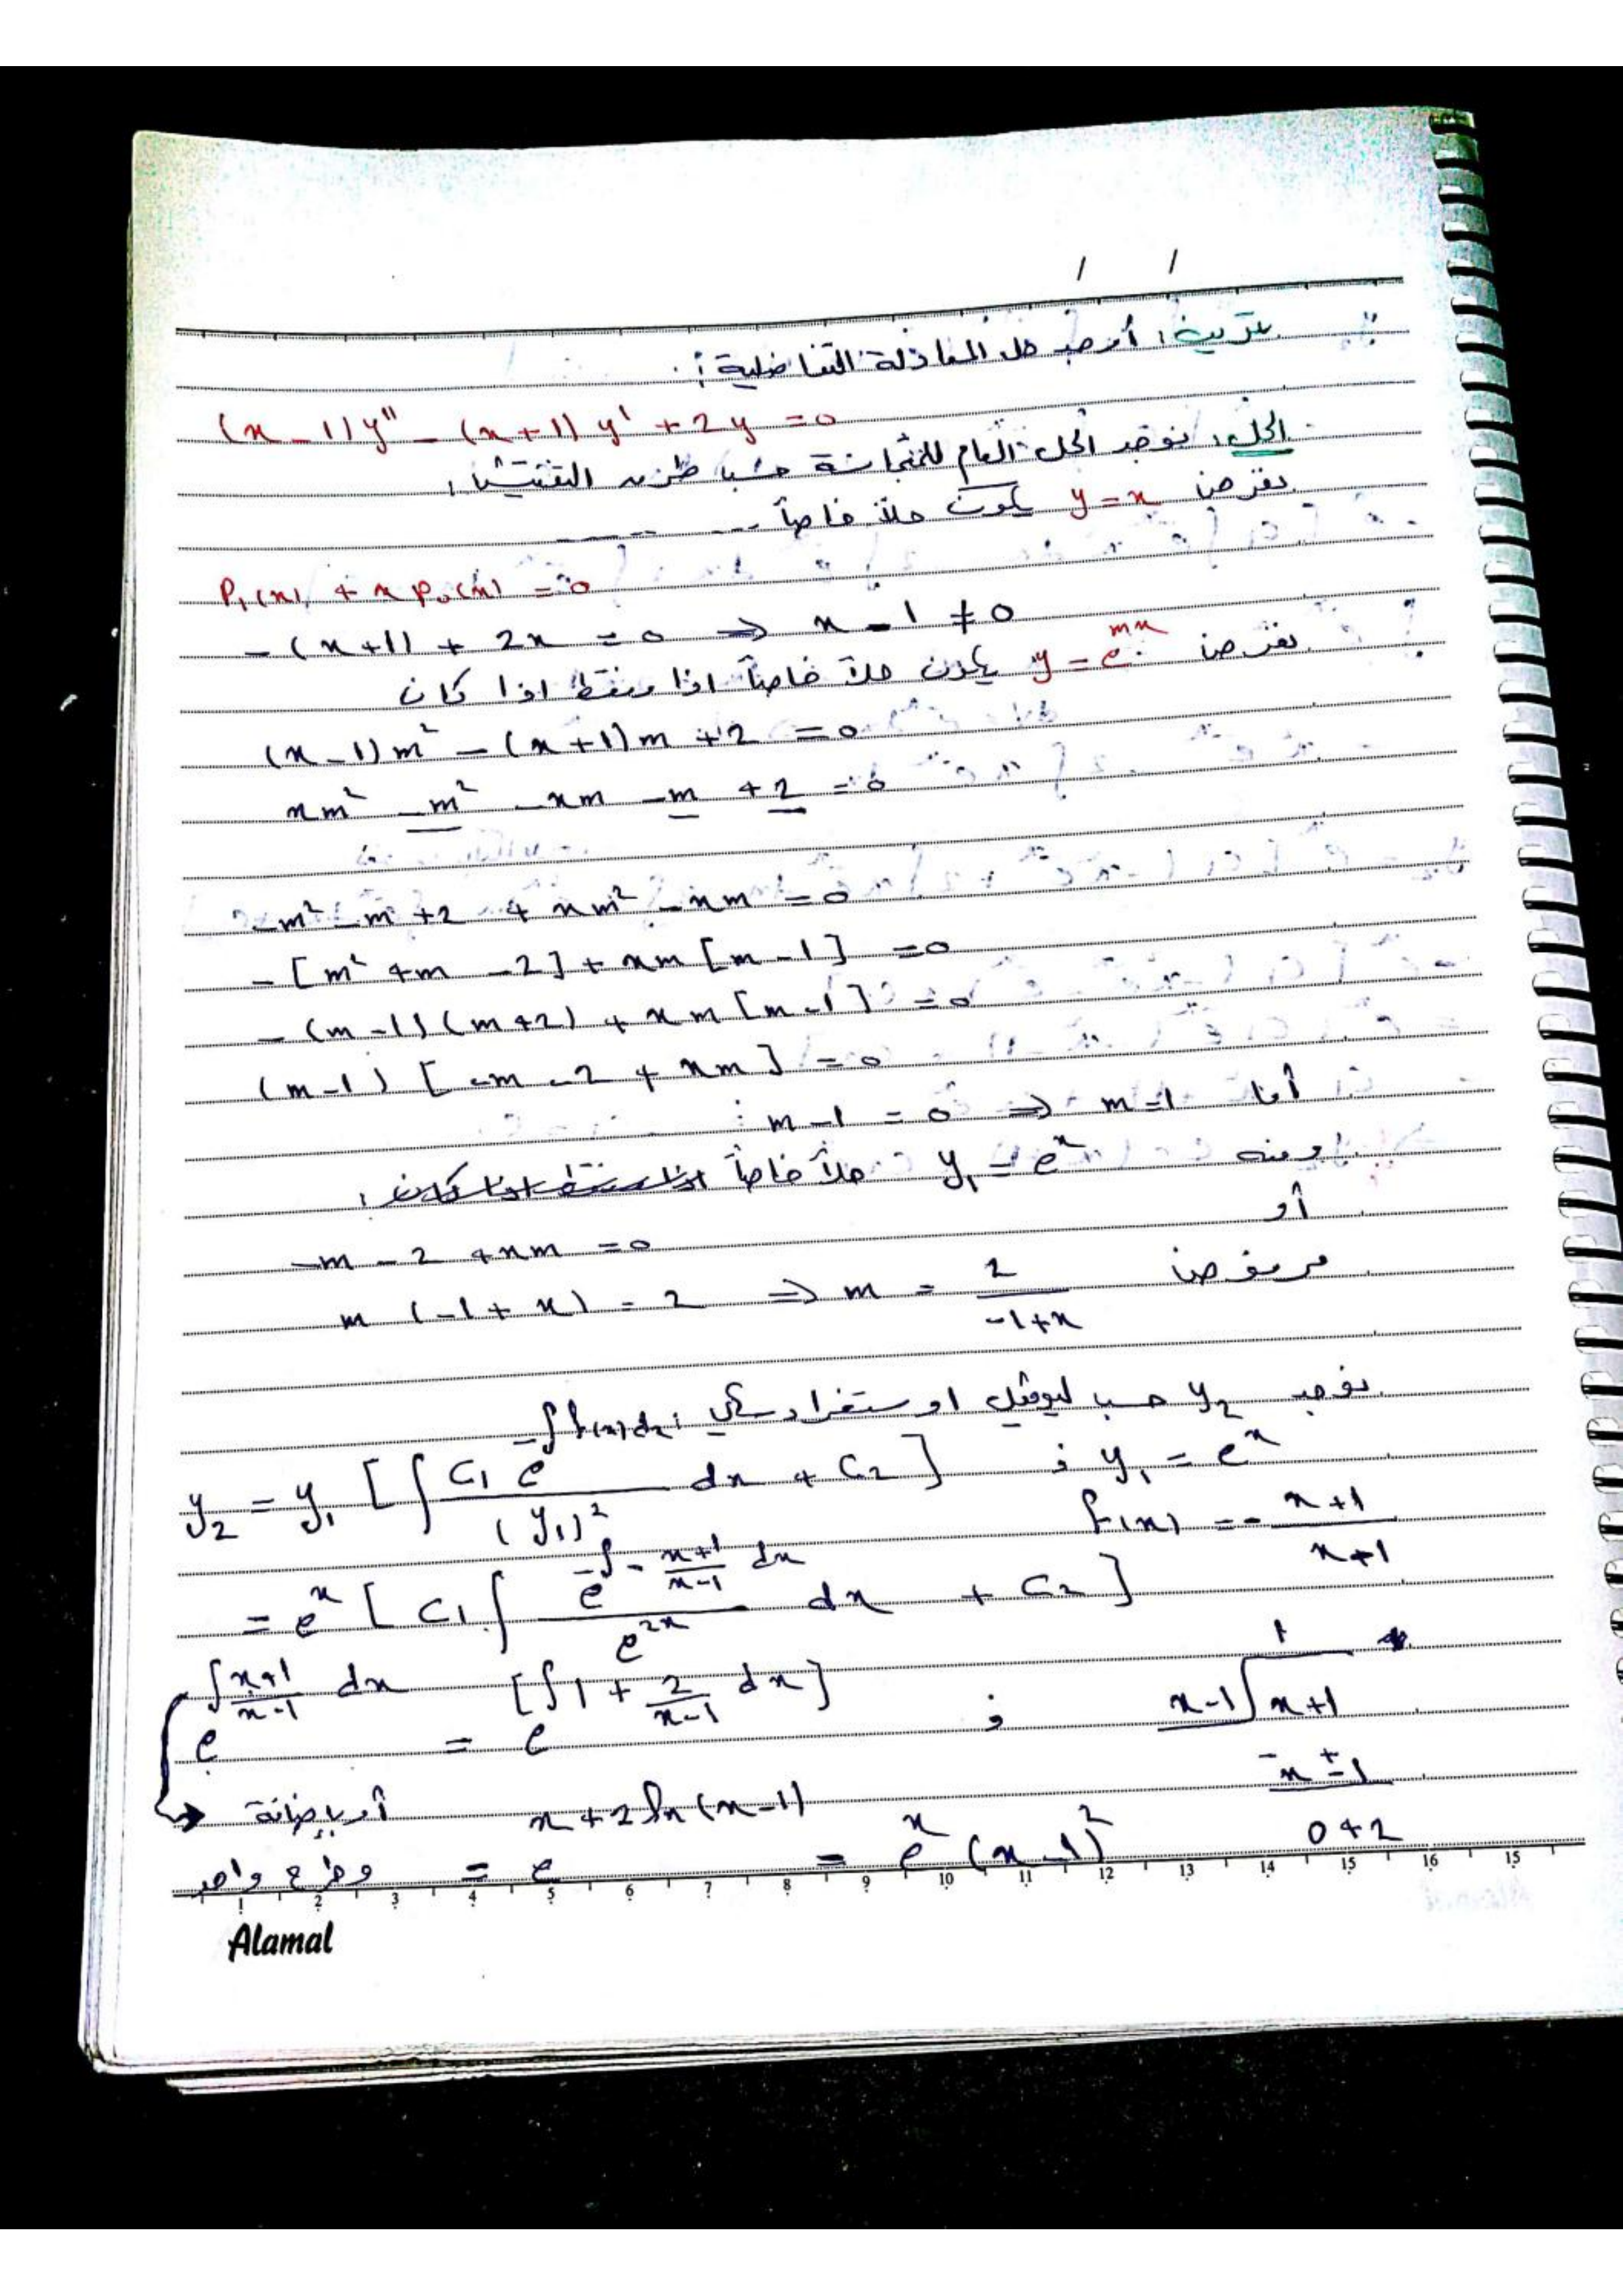 / /
تمرين: أوجد حل المعادلة التفاضلية:
(x-1)y'' - (x+1)y' + 2y = 0
الحل: نوجد الحل العام للمتجانسة حسب طريقة التفتيش:
نفرض y = x يكون حلاً خاصاً -----
P₁(x) + x P₀(x) = 0
-(x+1) + 2x = 0 ⇒ x - 1 ≠ 0
نفرض y = e^{mx} يكون حلاً خاصاً اذا وفقط اذا كان
(x-1)m² - (x+1)m + 2 = 0
xm² - m² - xm - m + 2 = 0
-m² - m + 2 + xm² - xm = 0
-[m² + m - 2] + xm[m-1] = 0
-(m-1)(m+2) + xm[m-1] = 0
(m-1)[-m - 2 + xm] = 0
أما m-1 = 0 ⇒ m=1
ومنه y₁ = e^x حلاً خاصاً
أو
-m - 2 + xm = 0
m(-1+x) = 2 ⇒ m = 2/(-1+x) مرفوض
نوجد y₂ حسب ليوفيل اوستغرادسكي:
y₂ = y₁ [∫ (C₁ e^{-∫f(x)dx})/(y₁)² dx + C₂] ; y₁ = e^x
f(x) = -(x+1)/(x+1)
= e^x [C₁ ∫ e^{-∫-(x+1)/(x-1) dx}/e^{2x} dx + C₂]
e^{∫(x+1)/(x-1) dx} = e^{[∫1 + 2/(x-1) dx]} ; x-1 √ x+1
1
-x ± 1
0+2
أو بإضافة
وطرح واحد = e^{x+2ln(x-1)} = e^x (x-1)²
1 2 3 4 5 6 7 8 9 10 11 12 13 14 15 16 15
Alamal